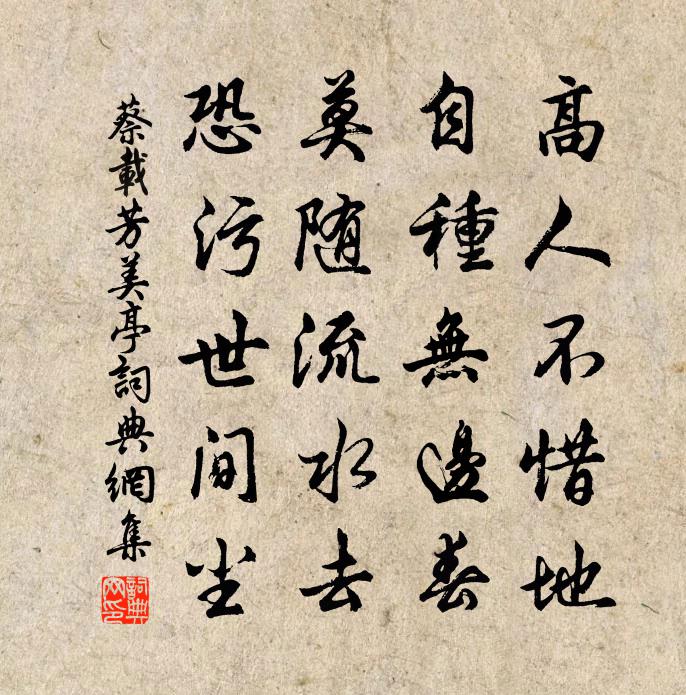 高人不惜地
自種無邊春
莫随流水去
恐污世間尘
蔡載芳美亭詞典網集
詞典網印